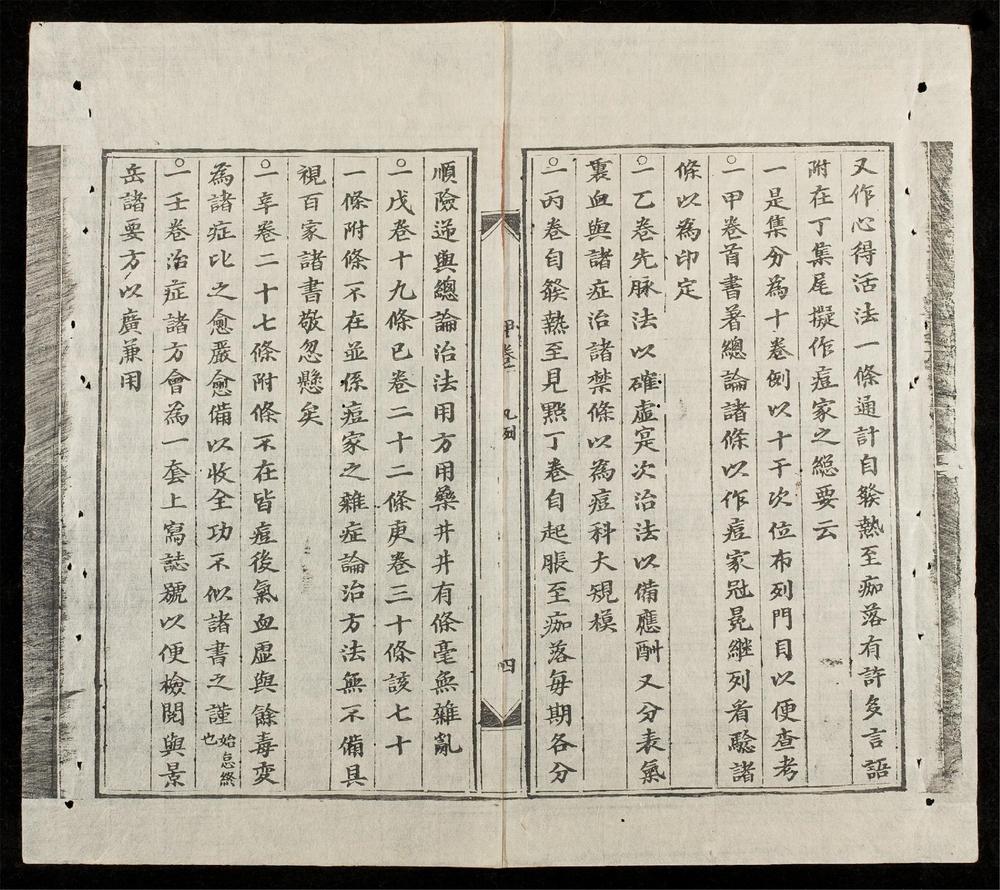 又作心得活法一條通計自發熱至痂落有許多言語
附在丁集尾擬作痘家之總要云
一是集分為十卷例以十干次位布列門目以便查考
○一甲卷首書著總論諸條以作痘家冠冕繼列看驗諸
條以為印定
○一乙卷先脉法以確虛寔次治法以備應酬又分表氣
裏血與諸症治諸禁條以為痘科大規模
○一丙卷自發熱至見㸃丁卷自起脹至痂落每期各分
甲卷 凡列 四
順險逆與總論治法用方用藥井井有條毫無雜亂
○一戊卷十九條巳卷二十二條庚卷三十條該七十
一條附條不在並係痘家之雜症論治方法無不備具
視百家諸書敬忽懸矣
○一辛卷二十七條附條不在皆痘後氣血虛與餘毒変
為諸症比之愈嚴愈備以收全功不似諸書之謹始怠終也
○一壬卷治症諸方會為一套上寫誌號以便檢閱與景
岳諸要方以廣兼用